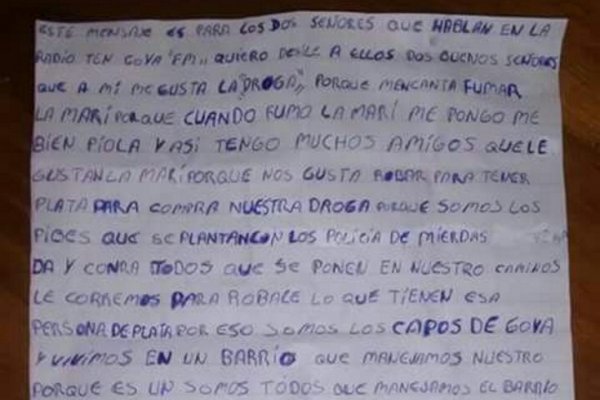 ESTE MENSAJE ES PARA LOS DOS SEÑORES QUE HABLAN EN LA
RADIO TEN GOYA "FM,, QUIERO DESILE A ELLOS DOS BUENOS SEÑORES
QUE A MI ME GUSTA LA "DROGA,, PORQUE MENCANTA FUMAR
LA MARI PORQUE CUANDO FUMO LA MARÍ ME PONGO ME
BIEN PIOLA Y ASI TENGO MUCHOS AMIGOS QUE LE
GUSTAN LA MARI PORQUE NOS GUSTA ROBAR PARA TENER
PLATA PARA COMPRA NUESTRA DROGA PORQUE SOMOS LOS
PIBES QUE SE PLANTAN CON LOS POLICIA DE MIERDAS
DA Y CONRA TODOS QUE SE PONEN EN NUESTRO CAMINOS
LE CORREMOS PARA ROBALE LO QUE TIENEN ESA
PERSONA DE PLATA POR ESO SOMOS LOS CAPOS DE GOYA
Y VIVIMOS EN UN BARRIO QUE MANEJAMOS NUESTRO
PORQUE ES UN SOMOS TODOS QUE MANEJAMOS EL BARRIO